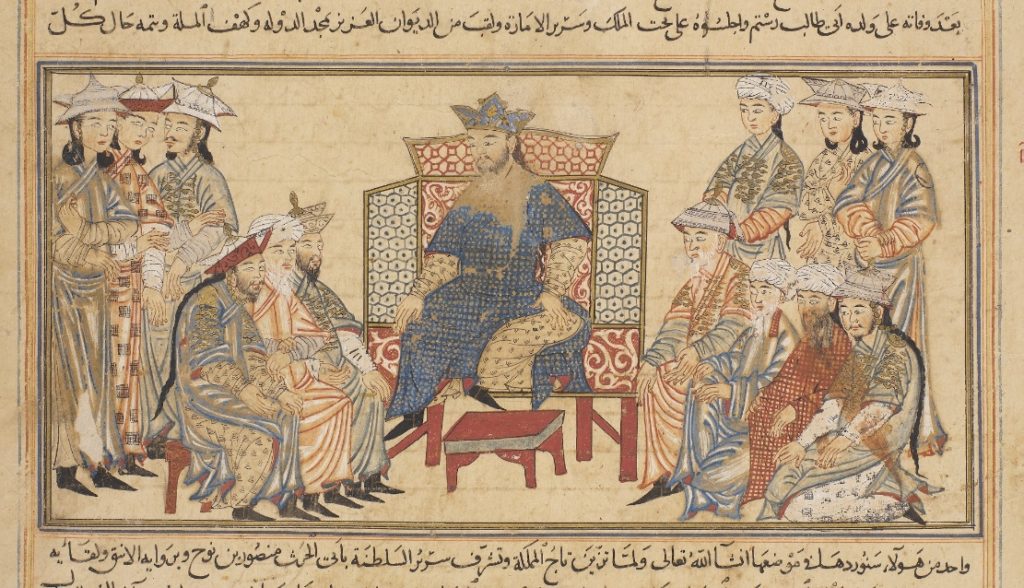 بعد وفاته على ولده ابى طالب رستم واجلسوه على تخت الملك وسرير الامارة ولقب من الديوان العزيز مجد الدوله وكهف الملة وتتمه حال كل
واحد من هولاء سنوردها فى موضعها انشا الله تعالى ولما تزين تاج المملكة وتشرف سرير السلطنة بابى الحرث منصور بن نوح وبروايه الانيق ولقايه